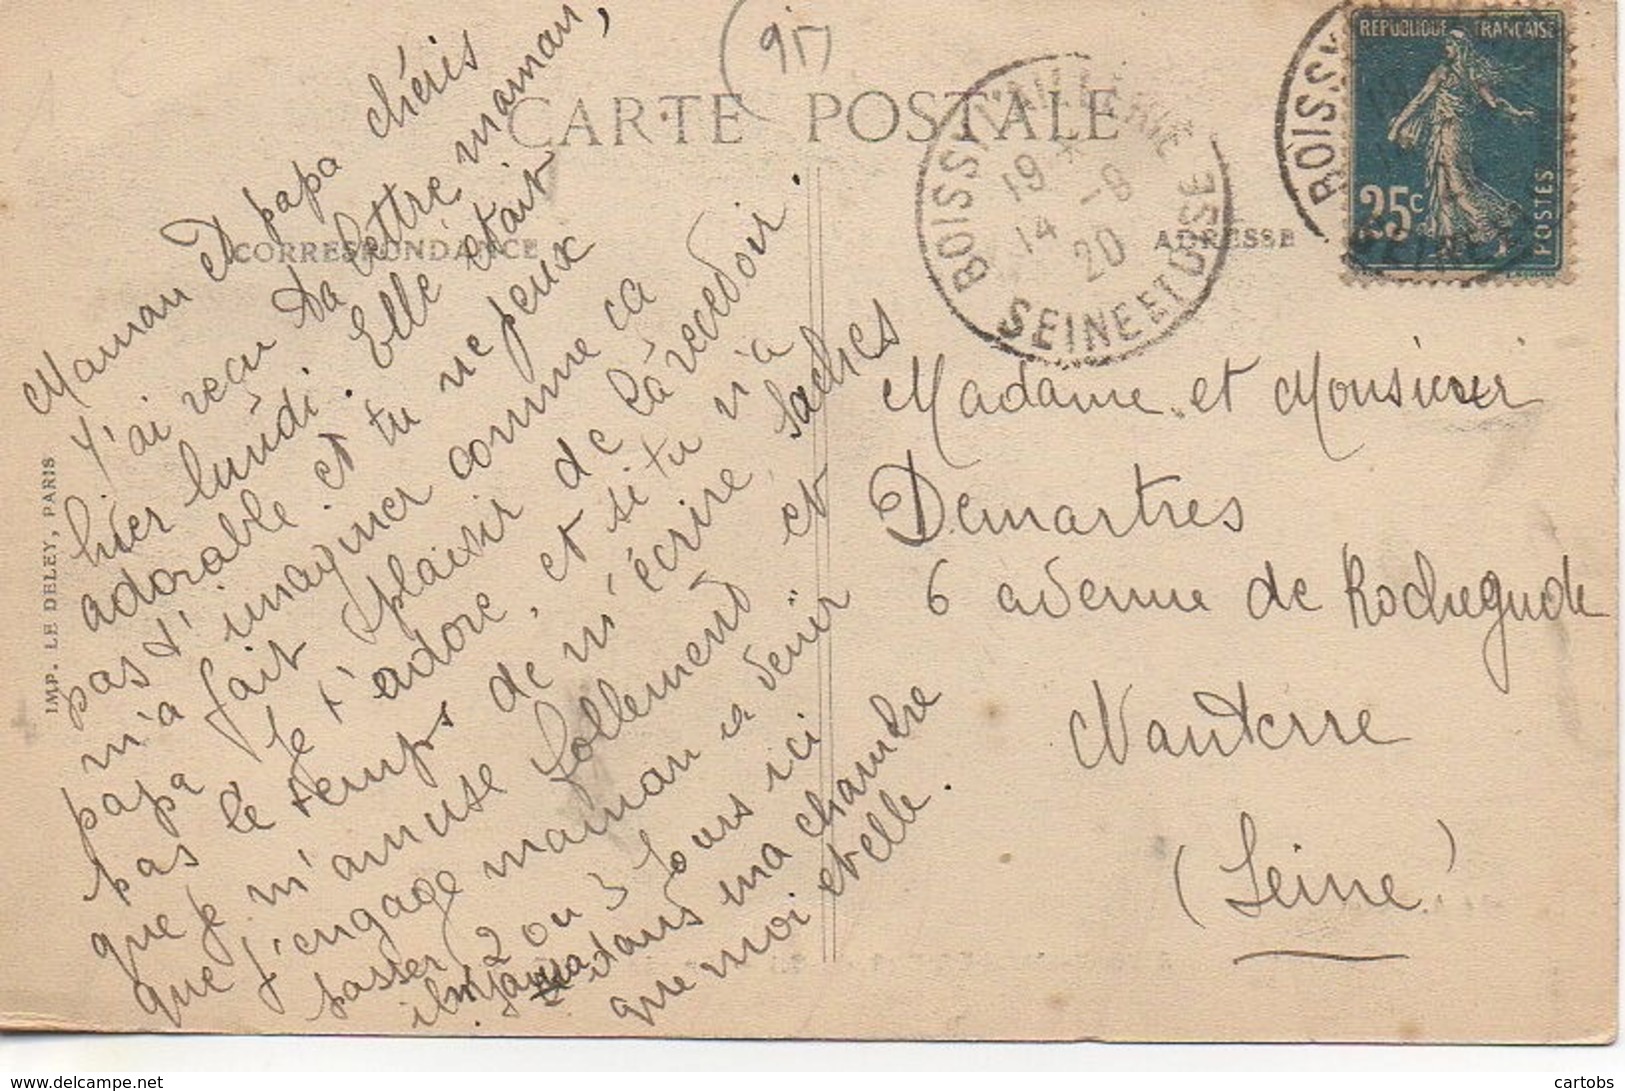 917
CARTE POSTALE
CORRESPONDANCE
ADRESSE
BOISSY L'AILLERIE
19 * -8
14
20
SEINE ET OISE
BOISSY
REPUBLIQUE FRANCAISE
25c
POSTES
IMP. LE DELEY, PARIS
Maman et papa chéris
J'ai recu ta lettre maman,
hier lundi. Elle était
adorable. et tu ne peux
pas t'imaginer comme ca
m'a fait plaisir de la recevoir.
papa je t'adore, et si tu n'a
pas le temps de m'écrire, saches
que je m'amuse follement et
que j'engage maman a venir
passer 2 ou 3 jours ici
il n'y aura dans ma chambre
que moi et elle.
Madame et Monsieur
Demartres
6 avenue de Rochegude
Nanterre
(Seine)
cartobs
delcampe.net